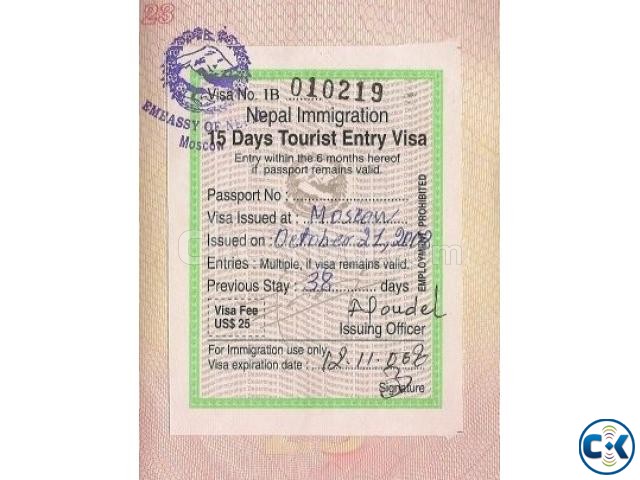 23
Visa No. 1B 010219
EMBASSY OF NE
Moscow
Nepal Immigration
15 Days Tourist Entry Visa
Entry within the 6 months hereof
if passport remains valid.
Passport No :
Visa Issued at : Moscow
Issued on : October 27, 2008
Entries : Multiple, if visa remains valid.
Previous Stay : 38 days
EMPLOYMENT PROHIBITED
Visa Fee
US$ 25
Issuing Officer
For Immigration use only
Visa expiration date : 12.11.008
Signature
CK